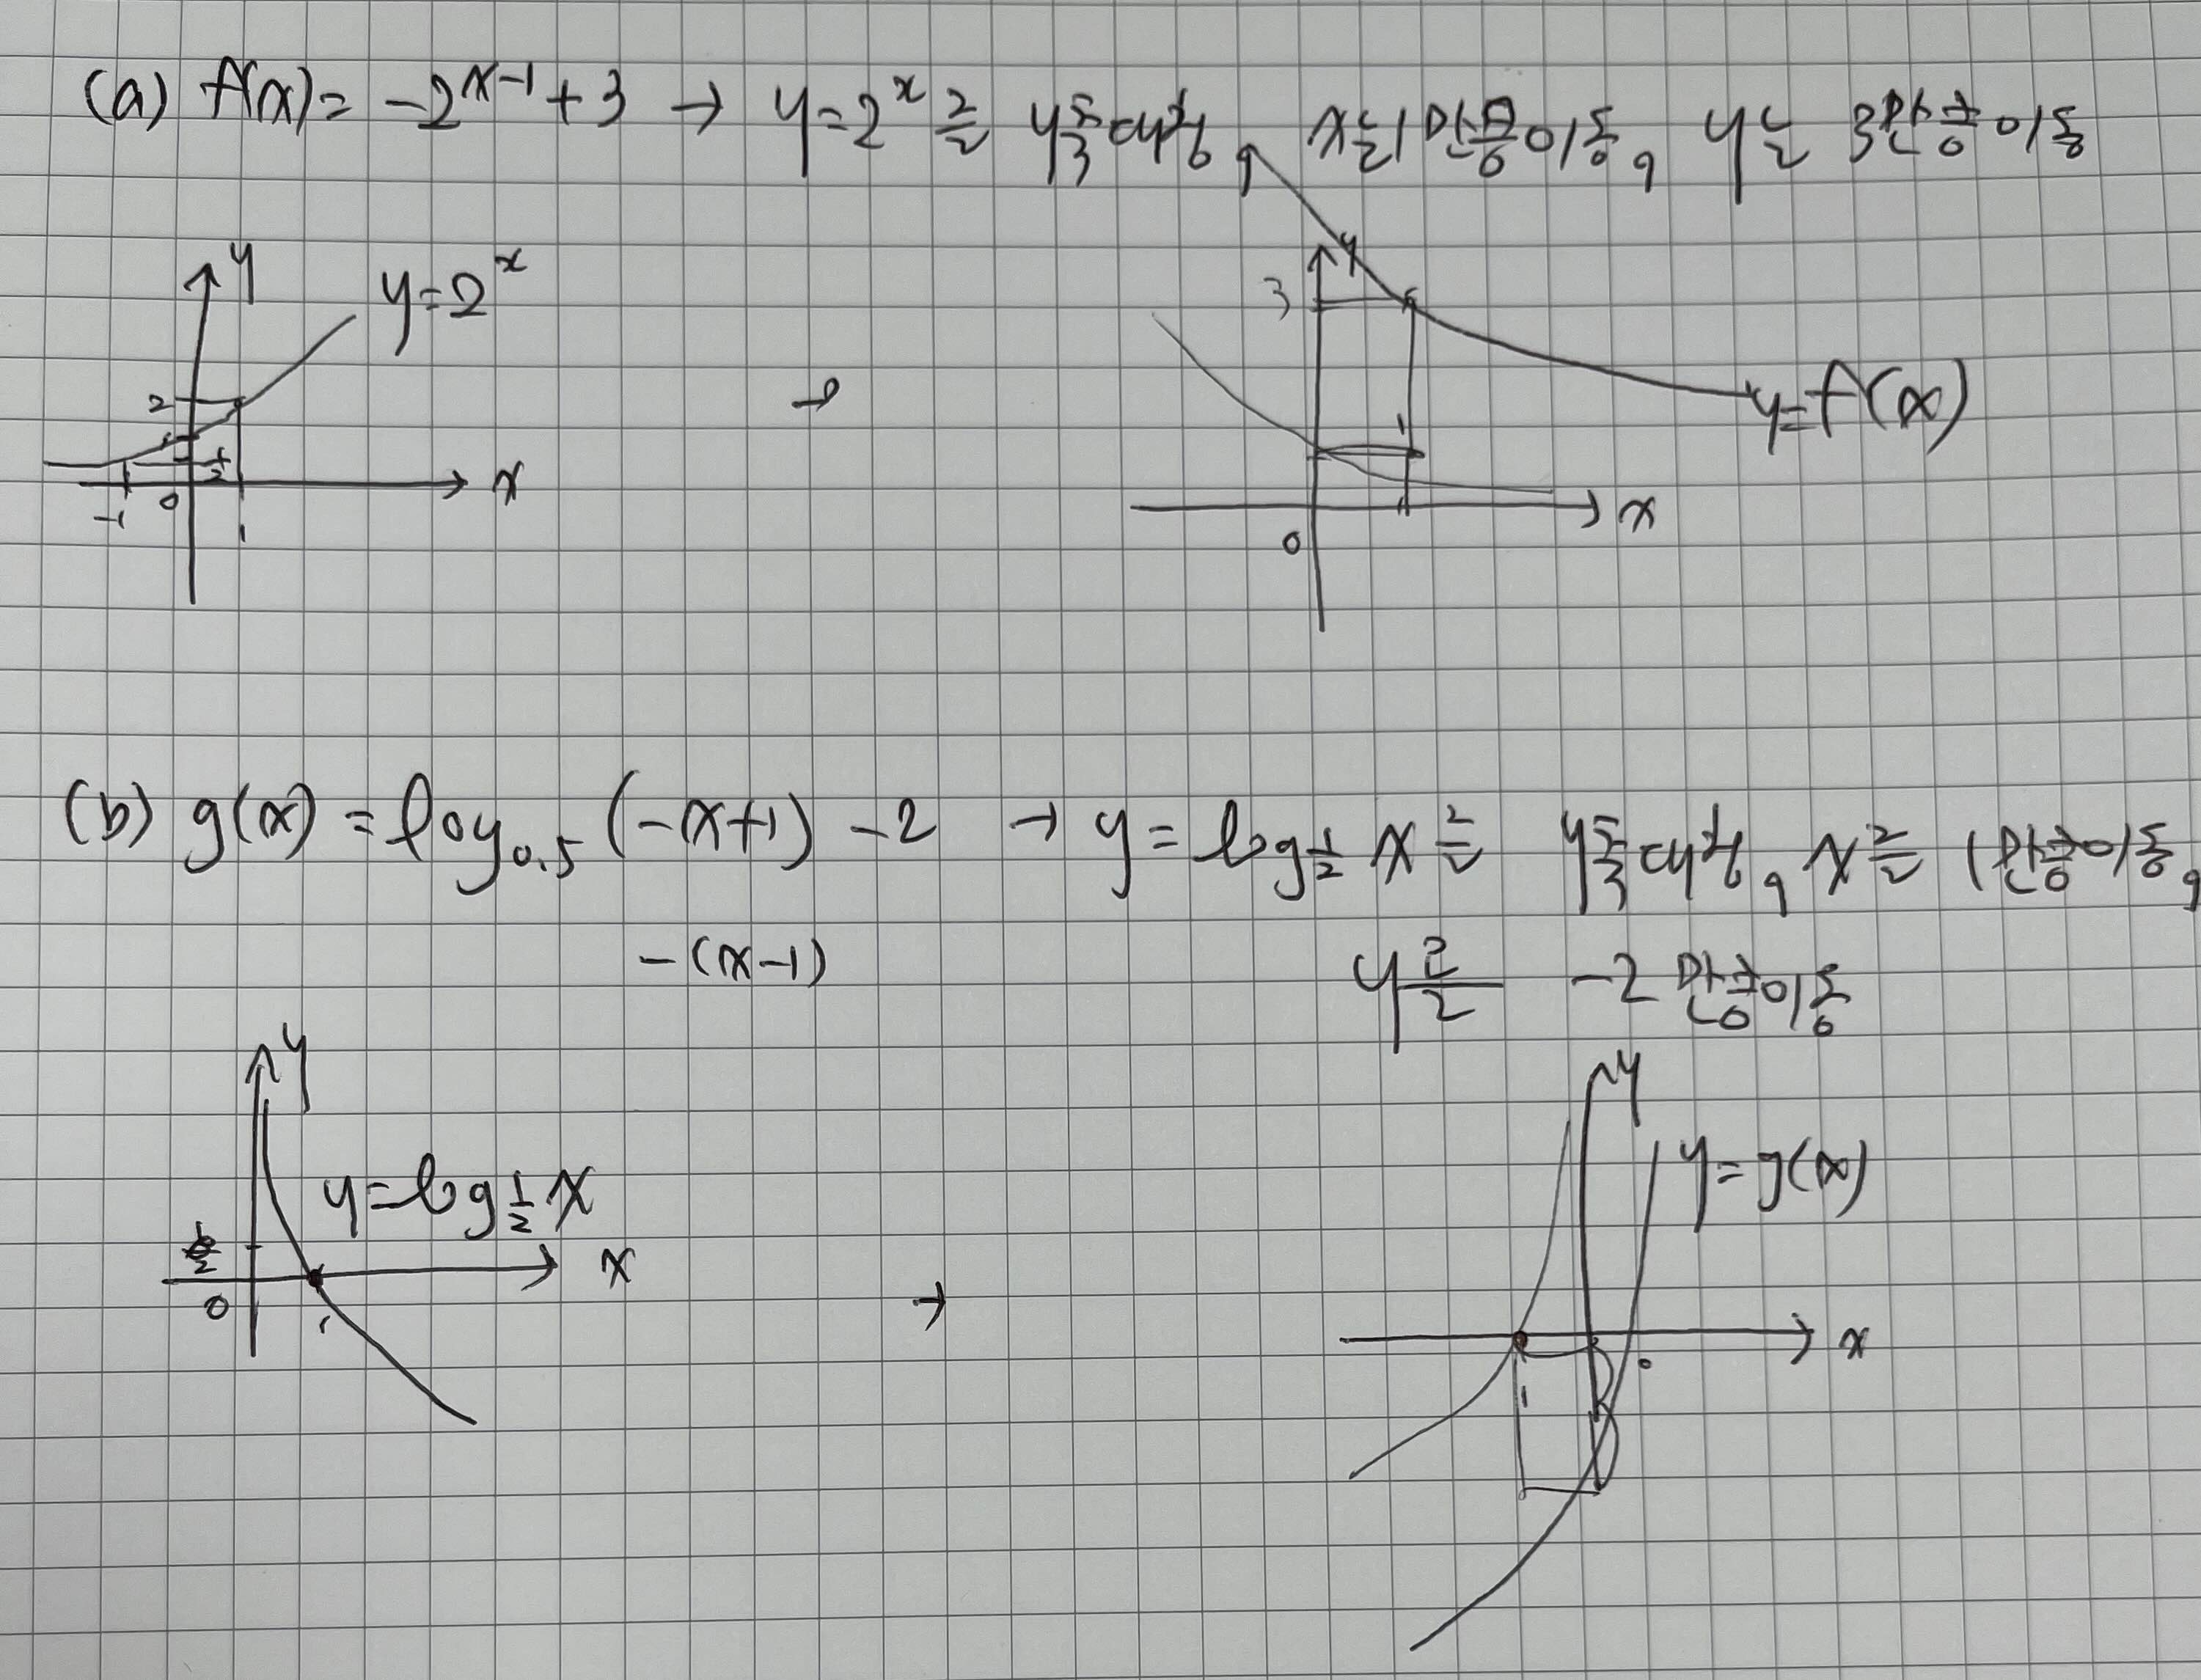 (a) f(x) = -2^{x-1} + 3 → y = 2^x 를 y축대칭, x는 1만큼이동, y는 3만큼이동
y
y = 2^x
2
1
1/2
-1
0
1
x
→
y
3
1
1
y = f(x)
0
x
(b) g(x) = log_{0.5} (-x+1) - 2 → y = log_{1/2} x를 y축대칭, x를 1만큼이동,
-(x-1)
y를 -2만큼이동
y
y = log_{1/2} x
0
1
x
→
y
y = g(x)
0
x